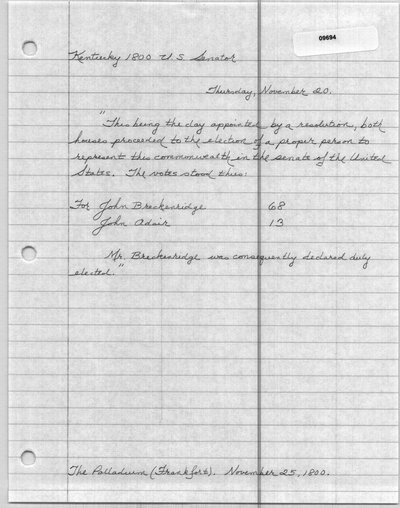 09694
Kentucky 1800 U.S. Senator
Thursday, November 20.
"This being the day appointed by a resolution, both
houses proceeded to the election of a proper person to
represent this commonwealth in the senate of the United
States. The votes stood thus:
For John Breckenridge 68
John Adair 13
Mr. Breckenridge was consequently declared duly
elected."
The Palladium (Frankfort). November 25, 1800.